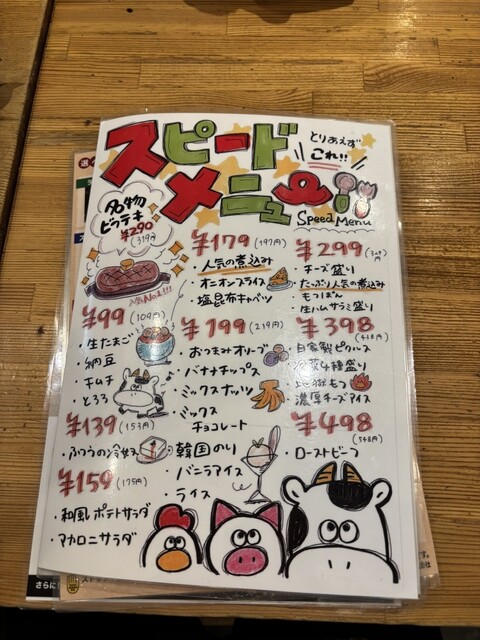 スピード
メニュー
とりあえず
これ!!
Speed Menu
名物
ビフテキ
¥290
(319円)
No.1!!!
¥99 (109円)
・生たまご
・納豆
・キムチ
・とろろ
¥139 (153円)
・ふつうの冷奴
¥159 (175円)
・和風ポテトサラダ
・マカロニサラダ
¥179 (197円)
・人気の煮込み
・オニオンスライス
・塩昆布キャベツ
¥199 (219円)
・おつまみオリーブ
・バナナチップス
・ミックスナッツ
・ミックス
チョコレート
・韓国のり
・バニラアイス
・ライス
¥299
・チーズ盛り
・たっぷり人気の煮込み
・もつぽん
・生ハムサラミ盛り
¥398 (438円)
・自家製ピクルス
4種盛り
もつ
濃厚チーズアイス
¥498
(548円)
・ローストビーフ
さらに